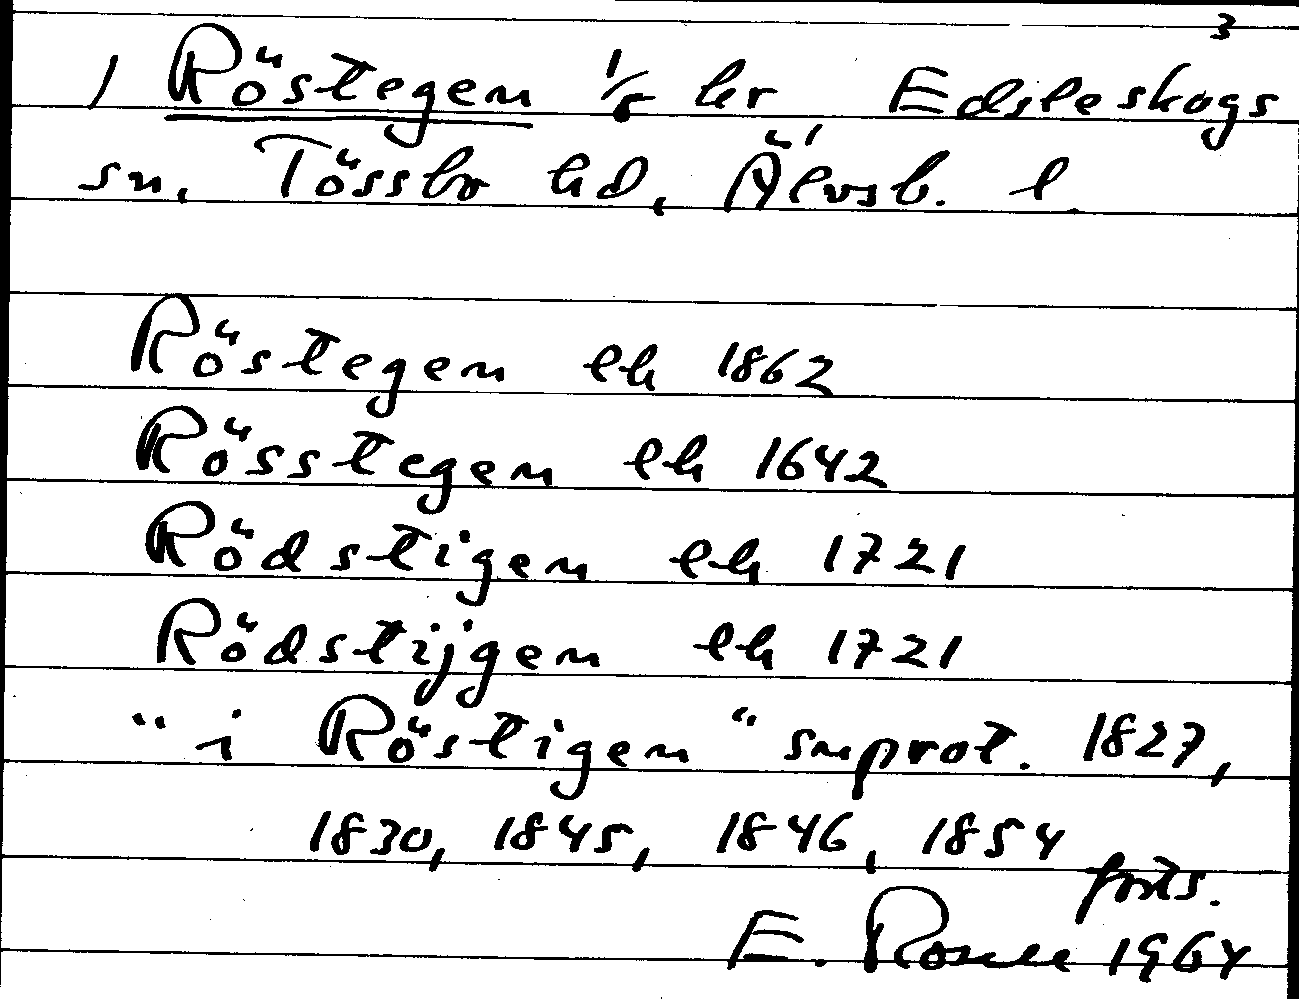 3
1 Röstegen 1/8 kr Edsleskogs
sn, Tössbo hd, Älvsb. l.
Röstegen lh 1862
Rösstegen lh 1642
Rödstigen lh 1721
Rödstijgen lh 1721
"i Röstigen" snprot. 1827,
1830, 1845, 1846, 1854
forts.
E. Rosell 1964